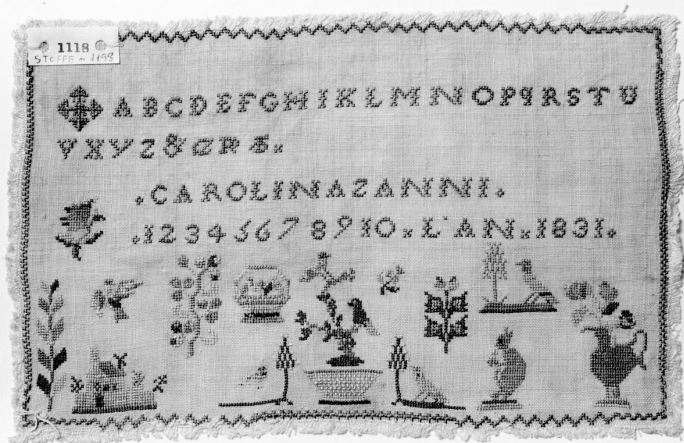 1118
STOFFE n 1198
A B C D E F G H I K L M N O P Q R S T U
V X Y Z &
.CAROLINA ZANNI.
.1 2 3 4 5 6 7 8 9 10 L'AN 1831.